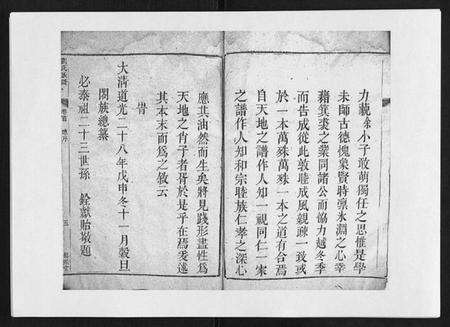 力藐余小子敢萌閣任之思惟是學
未師古德愧象賢時凛氷淵之心幸
藉箕裘之業同諸公而協力越冬季
而告成從此敦睦成風親疎一致或
於一本萬殊萬殊一本之道有合焉
自天地之譜作人知一視同仁一家
之譜作人知和宗睦族仁孝之深心
應其油然而生矣將見踐形盡性爲
天地之肖子者胥於是乎在焉爰述
其本末而爲之敘云
旹
大淸道光二十八年戊申冬十一月穀旦
閤族總纂
必泰祖二十三世孫 銓獻貽燉題
卷首
五